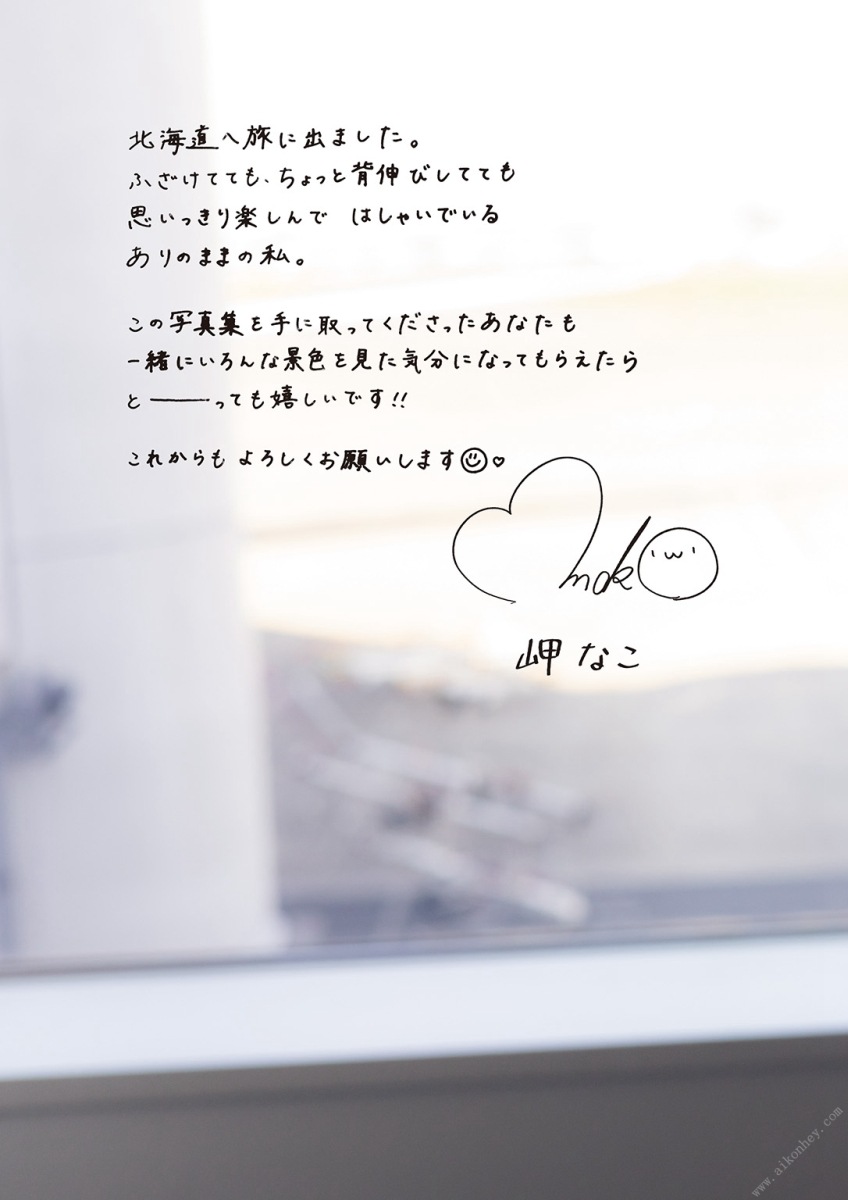 北海道へ旅に出ました。
ふざけてても、ちょっと背伸びしてても
思いっきり楽しんで はしゃいでいる
ありのままの私。
この写真集を手に取ってくださったあなたも
一緒にいろんな景色を見た気分になってもらえたら
と――っても嬉しいです!!
これからも よろしくお願いします☺♡
岬 なこ
www.aikonhey.com